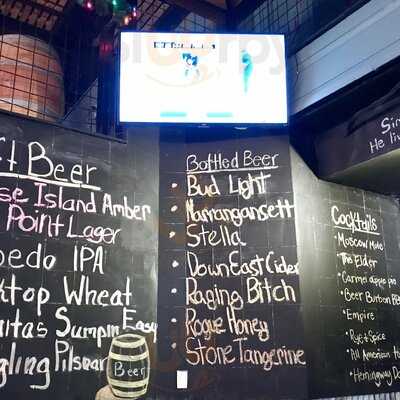 ft Beer
se Island Amber
Point Lager
pedo IPA
ktop Wheat
uitas Sumpin Easy
gling Pilsnar
Beer
Bottled Beer
• Bud Light
• Narrangansett
• Stella
• Down East Cider
• Raging Bitch
• Rogue Honey
• Stone Tangerine
Cocktails
• Moscow Mule
• The Elder
• Carmel apple pie
• Beer Burbon
• Empire
• Rye & Spice
• All American
• Hemingway Da
Sin
He li